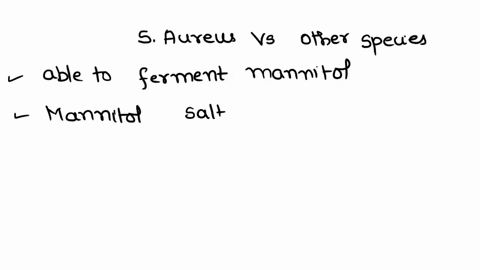 S. Aureus Vs other species
✓ able to ferment mannitol
✓ Mannitol salt